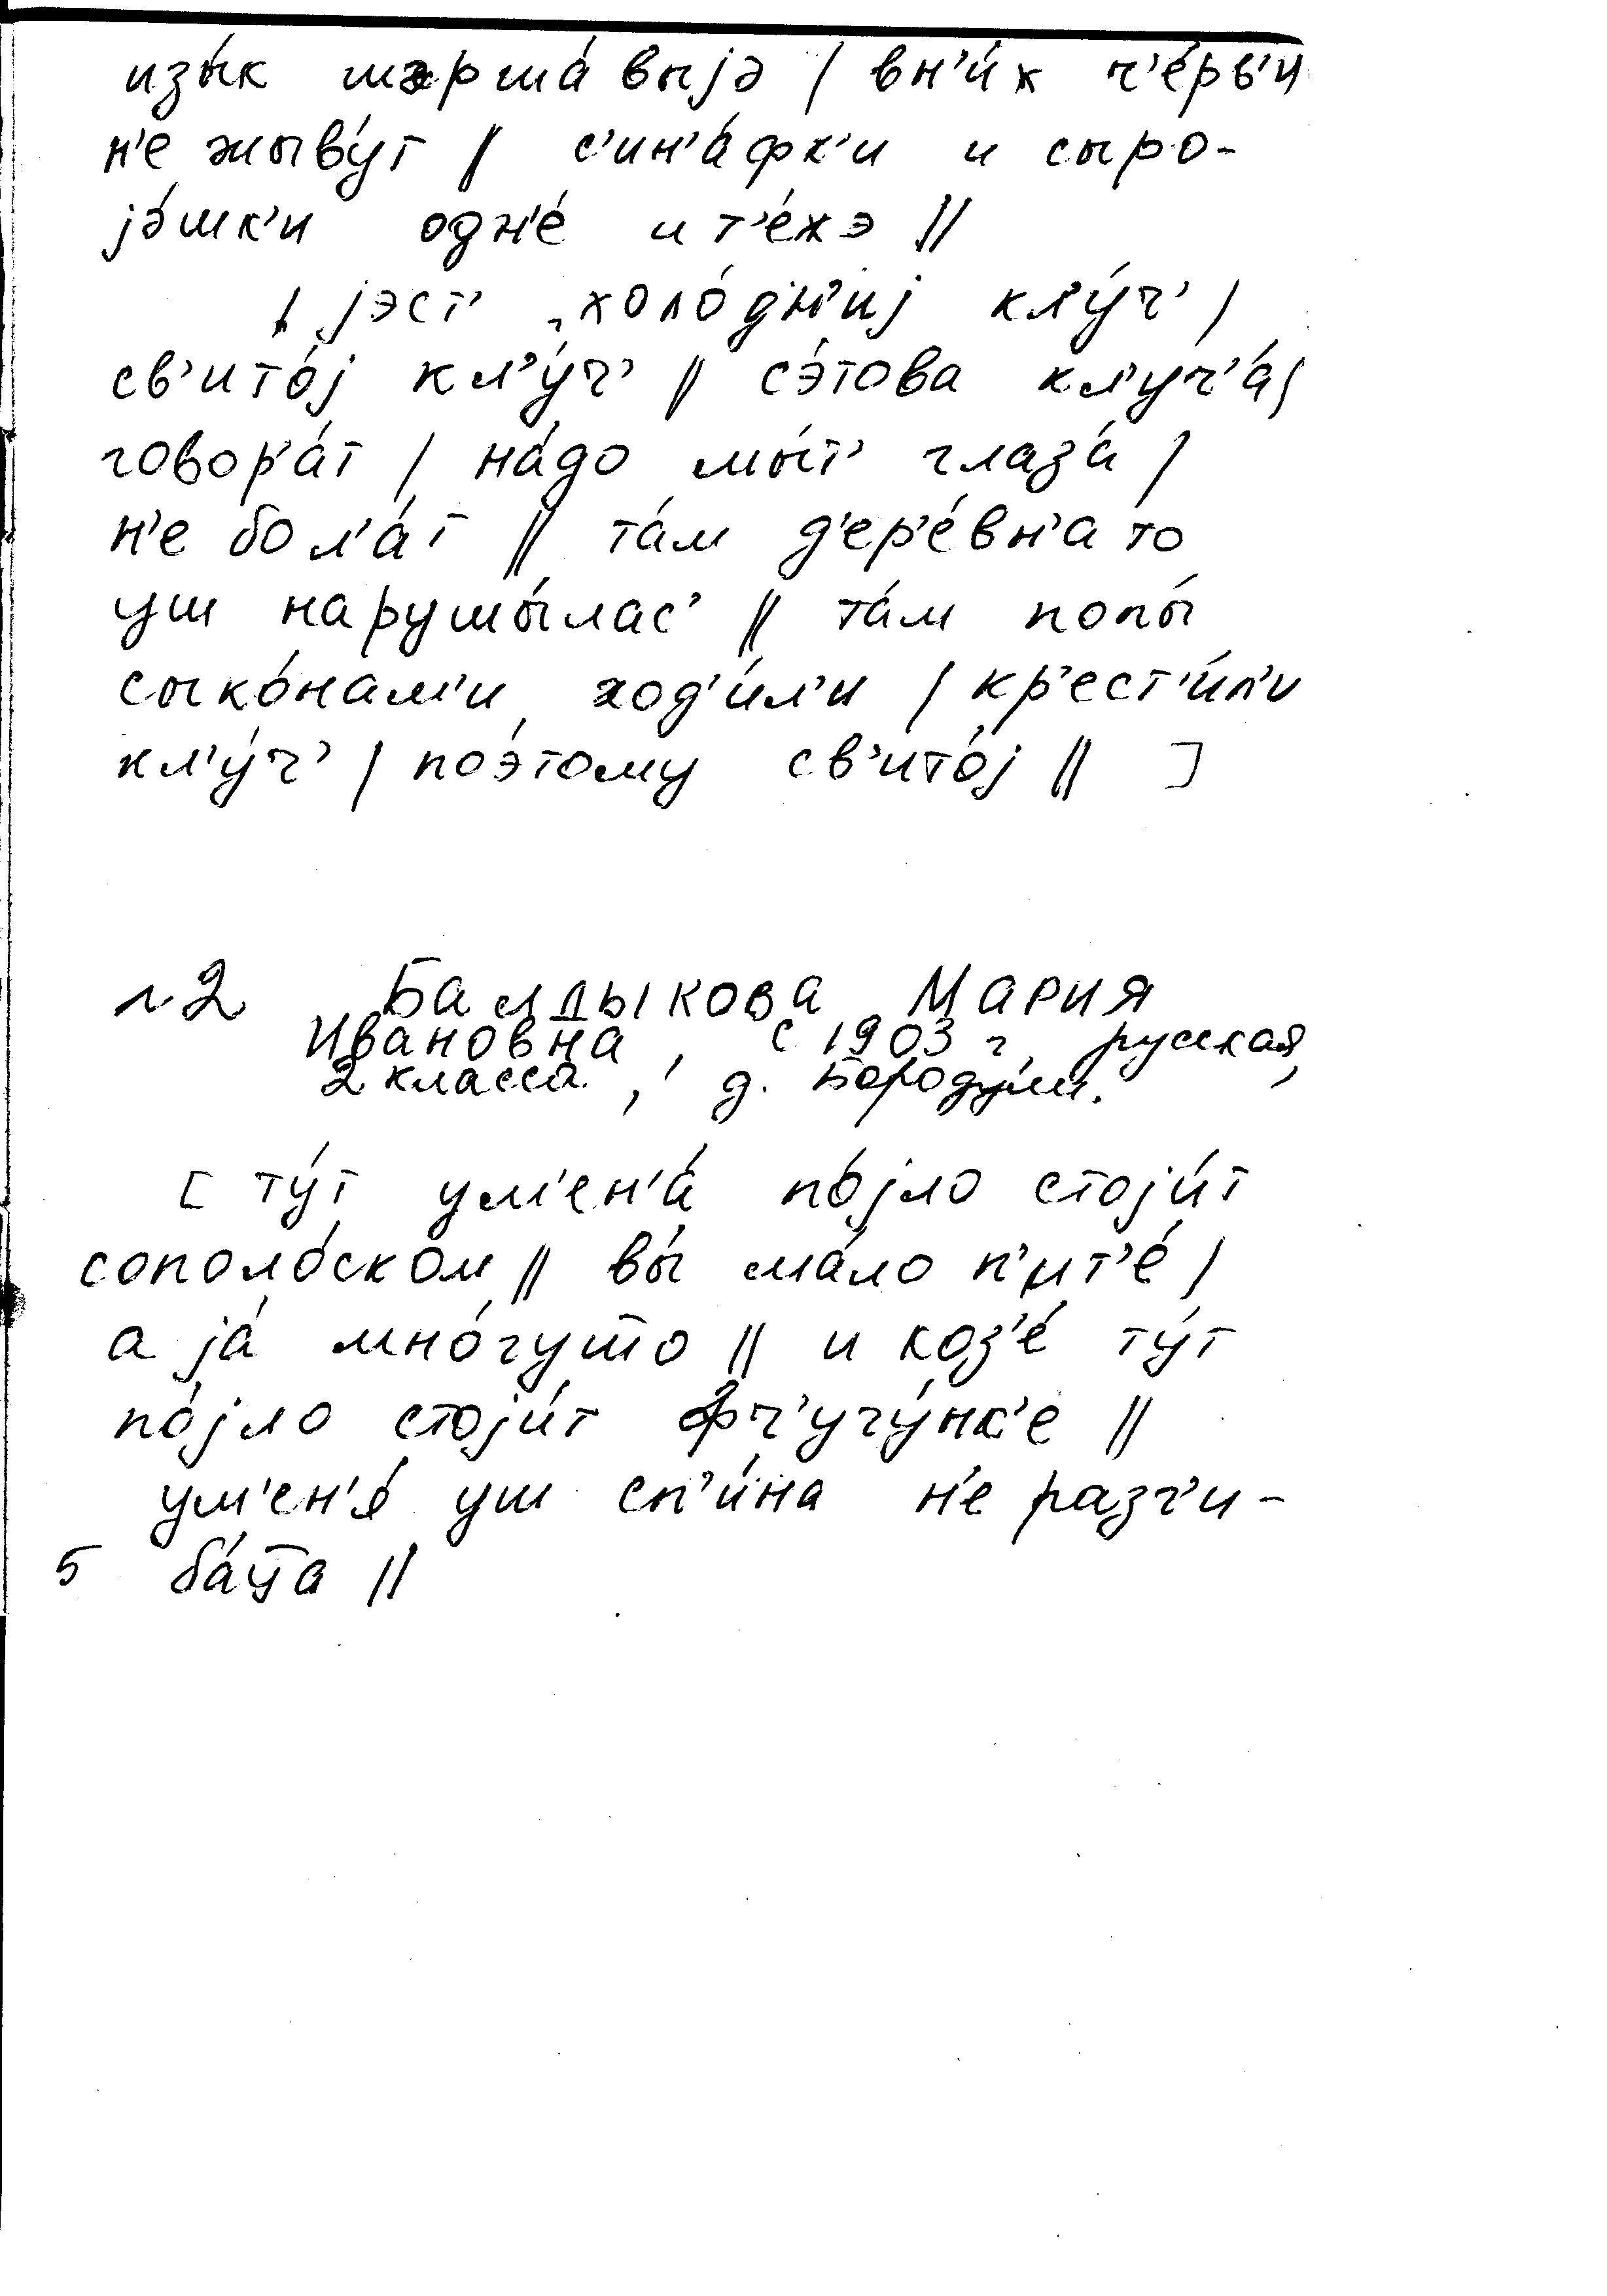 изы́к шэрша́выјэ / вн'и́х ч'е́рв'и
н'е жыву́т // с'ин'а́фк'и и сыро-
јэ́шк'и одн'е́ и т'е́хэ //
јэст' холо́дн'иј кл'у́ч' /
св'ито́ј кл'у́ч' // сэ́това кл'уч'а́ /
говор'а́т / на́до мы́т' глаза́ /
н'е бол'а́т // та́м д'ер'е́вн'а то
уш нарушы́лас' // та́м попы́
сыко́нам'и ход'и́л'и / кр'ест'и́л'и
кл'у́ч' / поэ́тому св'ито́ј // ]
№2 Балдыкова Мария
Ивановна, с 1903 г, русская,
2 класса, д. Бородули.
[ ту́т ум'ен'а́ по́јло стоји́т
сополо́ском // вы́ ма́ло п'ит'е́ /
а ја́ мно́гуто // и коз'е́ ту́т
по́јло стоји́т фч'угу́нк'е //
ум'ен'а́ уш сп'и́на н'е разг'и-
5 ба́ца //